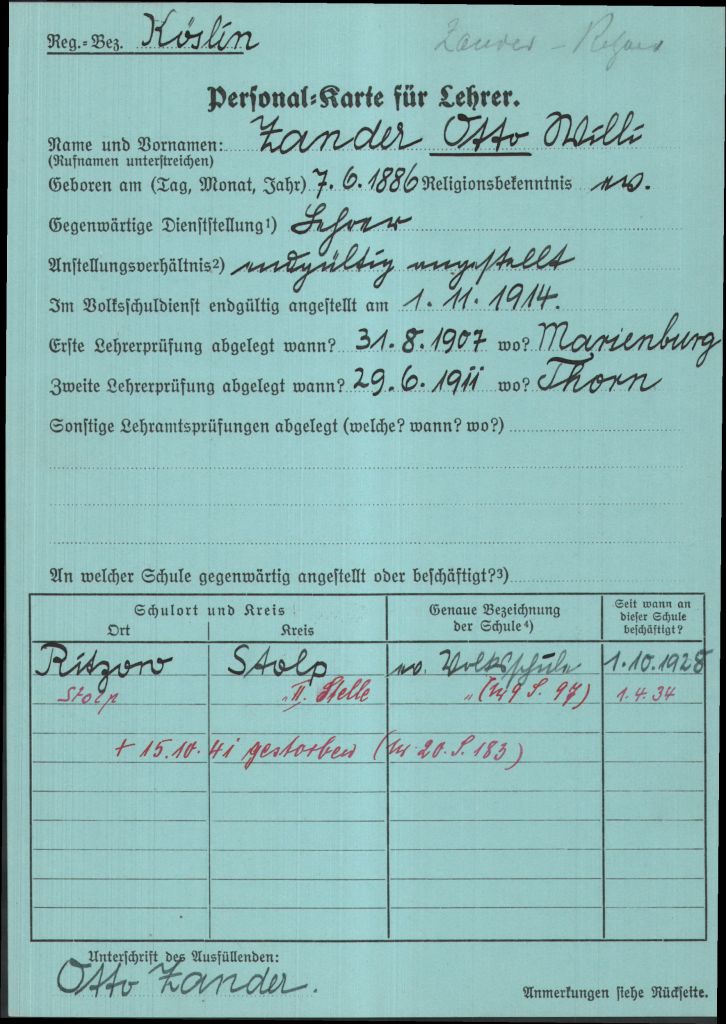 Reg.=Bez. Köslin
Zander –
Personal=Karte für Lehrer.
Name und Vornamen: Zander Otto Willi
(Rufnamen unterstreichen)
Geboren am (Tag, Monat, Jahr) 7. 6. 1886 Religionsbekenntnis ev.
Gegenwärtige Dienststellung¹) Lehrer
Anstellungsverhältnis²) endgültig angestellt
Im Volksschuldienst endgültig angestellt am 1. 11. 1914.
Erste Lehrerprüfung abgelegt wann? 31. 8. 1907 wo? Marienburg
Zweite Lehrerprüfung abgelegt wann? 29. 6. 1911 wo? Thorn
Sonstige Lehramtsprüfungen abgelegt (welche? wann? wo?)
An welcher Schule gegenwärtig angestellt oder beschäftigt?³)
Schulort und Kreis
Ort Kreis
Genaue Bezeichnung
der Schule⁴)
Seit wann an
dieser Schule
beschäftigt?
Ritzow Stolp ev. Volksschule 1. 10. 1928
Stolp „II. Stelle „ S. 97) 1. 4. 34
+ 15. 10. 41 gestorben 20. S. 183)
Unterschrift des Ausfüllenden:
Otto Zander.
Anmerkungen siehe Rückseite.